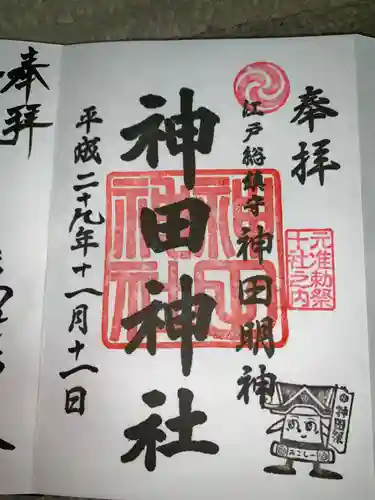 奉拝
江戸総鎮守 神田明神
元准勅祭
十社之内
神田神社
平成二十九年十一月十一日
神田祭
みこしー
奉拝